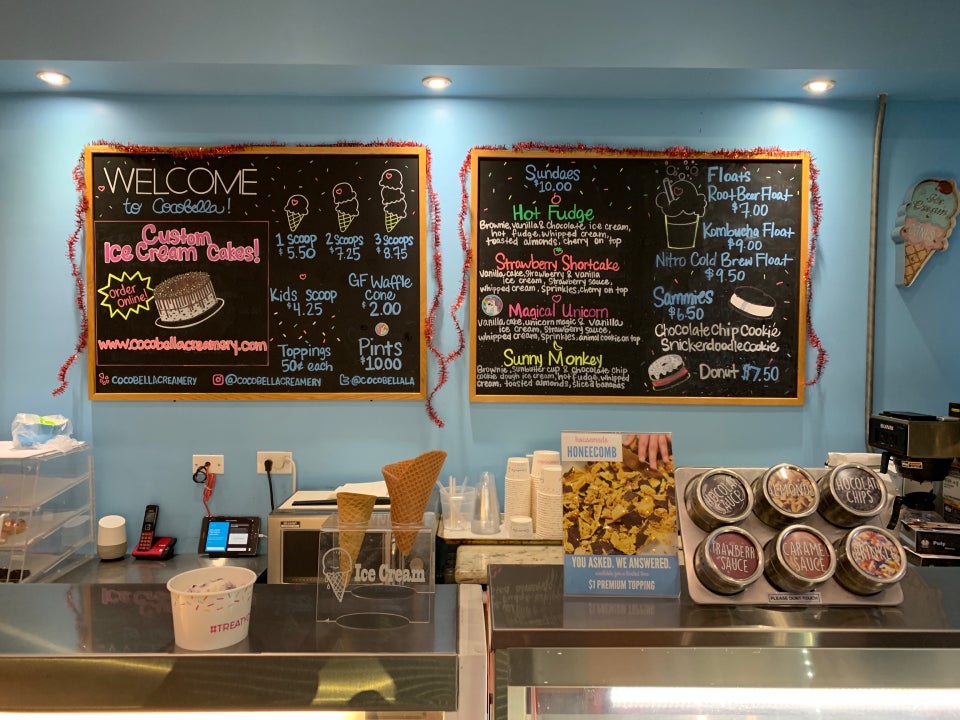 WELCOME
to CocoBella!
Custom
Ice Cream Cakes!
Order
Online!
www.cocobellacreamery.com
1 SCOOP
$5.50
2 SCOOPS
$7.25
3 SCOOPS
$8.75
Kids Scoop
$4.25
GF Waffle
Cone
$2.00
Toppings
50¢ each
Pints
$10.00
COCOBELLACREAMERY
@COCOBELLACREAMERY
@COCOBELLALA
Sundaes
$10.00
Hot Fudge
Brownie, vanilla & chocolate ice cream,
hot fudge, whipped cream,
toasted almonds, cherry on top
Strawberry Shortcake
Vanilla cake, strawberry & vanilla
ice cream, strawberry sauce,
whipped cream, sprinkles, cherry on top
Magical Unicorn
Vanilla cake, unicorn magic & vanilla
ice cream, strawberry sauce,
whipped cream, sprinkles, animal cookie on top
Sunny Monkey
Brownie, sunbutter cup & chocolate chip
cookie dough ice cream, hot fudge, whipped
cream, toasted almonds, sliced bananas
Floats
Root Beer Float
$7.00
Kombucha Float
$9.00
Nitro Cold Brew Float
$9.50
Sammies
$6.50
Chocolate Chip Cookie
Snickerdoodle cookie
Donut $7.50
Ice Cream
BUNN
homemade
HONEECOMB
YOU ASKED. WE ANSWERED.
available for a limited time
$1 PREMIUM TOPPING
CHOCOLATE
SAUCE
ALMONDS
CHOCOLATE
CHIPS
STRAWBERRY
SAUCE
CARAMEL
SAUCE
SPRINKLES
PLEASE DON'T TOUCH
Ice Cream
Poly